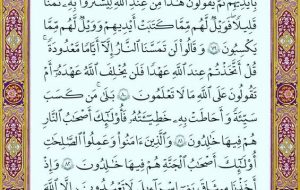 بِأَيْدِيهِمْ ثُمَّ يَقُولُونَ هَٰذَا مِنْ عِندِ ٱللَّهِ لِيَشْتَرُوا۟ بِهِۦ ثَمَنًا
قَلِيلًا فَوَيْلٌ لَّهُم مِّمَّا كَتَبَتْ أَيْدِيهِمْ وَوَيْلٌ لَّهُم مِّمَّا
يَكْسِبُونَ ٧٩ وَقَالُوا۟ لَن تَمَسَّنَا ٱلنَّارُ إِلَّآ أَيَّامًا مَّعْدُودَةً
قُلْ أَتَّخَذْتُمْ عِندَ ٱللَّهِ عَهْدًا فَلَن يُخْلِفَ ٱللَّهُ عَهْدَهُۥٓ أَمْ
تَقُولُونَ عَلَى ٱللَّهِ مَا لَا تَعْلَمُونَ ٨٠ بَلَىٰ مَن كَسَبَ
سَيِّئَةً وَأَحَٰطَتْ بِهِۦ خَطِيٓـَٔتُهُۥ فَأُو۟لَٰٓئِكَ أَصْحَٰبُ ٱلنَّارِ
هُمْ فِيهَا خَٰلِدُونَ ٨١ وَٱلَّذِينَ ءَامَنُوا۟ وَعَمِلُوا۟ ٱلصَّٰلِحَٰتِ
أُو۟لَٰٓئِكَ أَصْحَٰبُ ٱلْجَنَّةِ هُمْ فِيهَا خَٰلِدُونَ ٨٢ وَإِذْ
أَخَذْنَا مِيثَٰقَ بَنِىٓ إِسْرَٰٓءِيلَ لَا تَعْبُدُونَ إِلَّا ٱللَّهَ